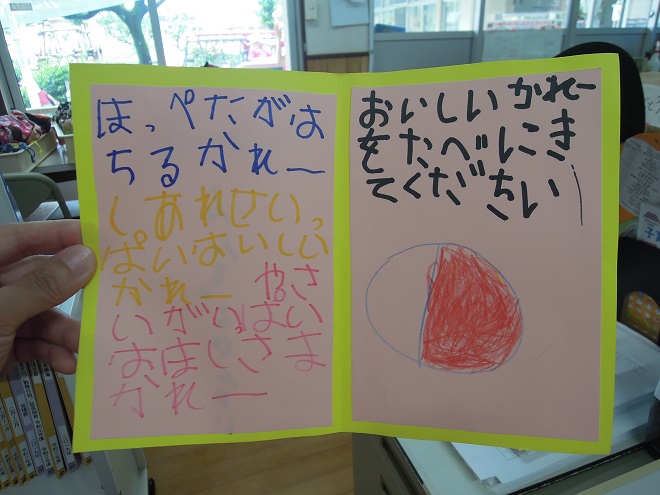 はっぺたがお
ちるかれー
しあわせいっ
ぱいおいしい
かれー やさ
いがいっぱい
おほしさま
かれー
おいしいかれー
をたべにき
てください！